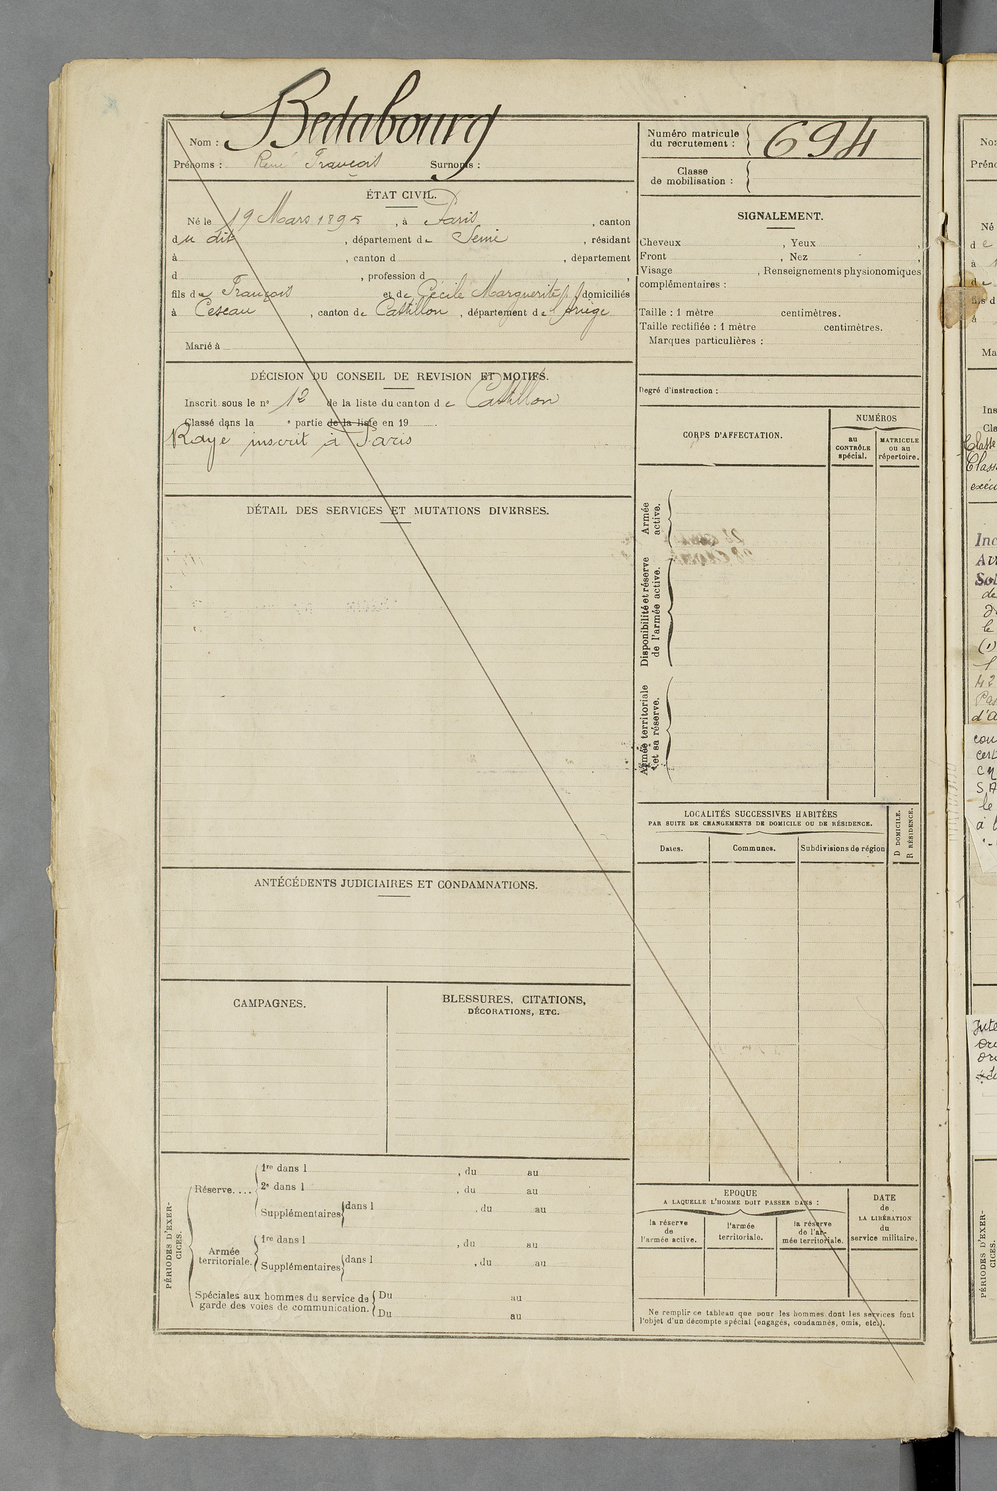 Nom : Bedabourg
Prénoms : René François Surnoms :
ÉTAT CIVIL.
Né le 19 Mars 1895, à Paris, canton
du dit, département de Seine, résidant
à , canton d , département
d , profession d ,
fils de François et de Cécile Marguerite, domiciliés
à Cescau, canton de Castillon, département de l'Ariège
Marié à
DÉCISION DU CONSEIL DE REVISION ET MOTIFS.
Inscrit sous le n° 12 de la liste du canton de Castillon
Classé dans la e partie de la liste en 19 .
Rayé inscrit à Paris
DÉTAIL DES SERVICES ET MUTATIONS DIVERSES.
ANTÉCÉDENTS JUDICIAIRES ET CONDAMNATIONS.
CAMPAGNES.
BLESSURES, CITATIONS,
DÉCORATIONS, ETC.
PÉRIODES D'EXER-
CICES.
Réserve....
1re dans l , du au
2e dans l , du au
Supplémentaires dans l , du au
Armée
territoriale.
1re dans l , du au
Supplémentaires dans l , du au
Spéciales aux hommes du service de
garde des voies de communication.
Du au
Du au
Numéro matricule
du recrutement : 694
Classe
de mobilisation :
SIGNALEMENT.
Cheveux , Yeux ,
Front , Nez ,
Visage , Renseignements physionomiques
complémentaires :
Taille : 1 mètre centimètres.
Taille rectifiée : 1 mètre centimètres.
Marques particulières :
Degré d'instruction :
CORPS D'AFFECTATION.
NUMÉROS
au
CONTRÔLE
spécial.
MATRICULE
ou au
répertoire.
Armée
active.
Disponibilité et réserve
de l'armée active.
Armée territoriale
et sa réserve.
LOCALITÉS SUCCESSIVES HABITÉES
PAR SUITE DE CHANGEMENTS DE DOMICILE OU DE RÉSIDENCE.
Dates.
Communes.
Subdivisions de région
D DOMICILE.
R RÉSIDENCE.
EPOQUE
A LAQUELLE L'HOMME DOIT PASSER DANS :
la réserve
de
l'armée active.
l'armée
territoriale.
la réserve
de l'ar-
mée territoriale.
DATE
de
LA LIBÉRATION
du
service militaire.
Ne remplir ce tableau que pour les hommes dont les services font
l'objet d'un décompte spécial (engagés, condamnés, omis, etc.).